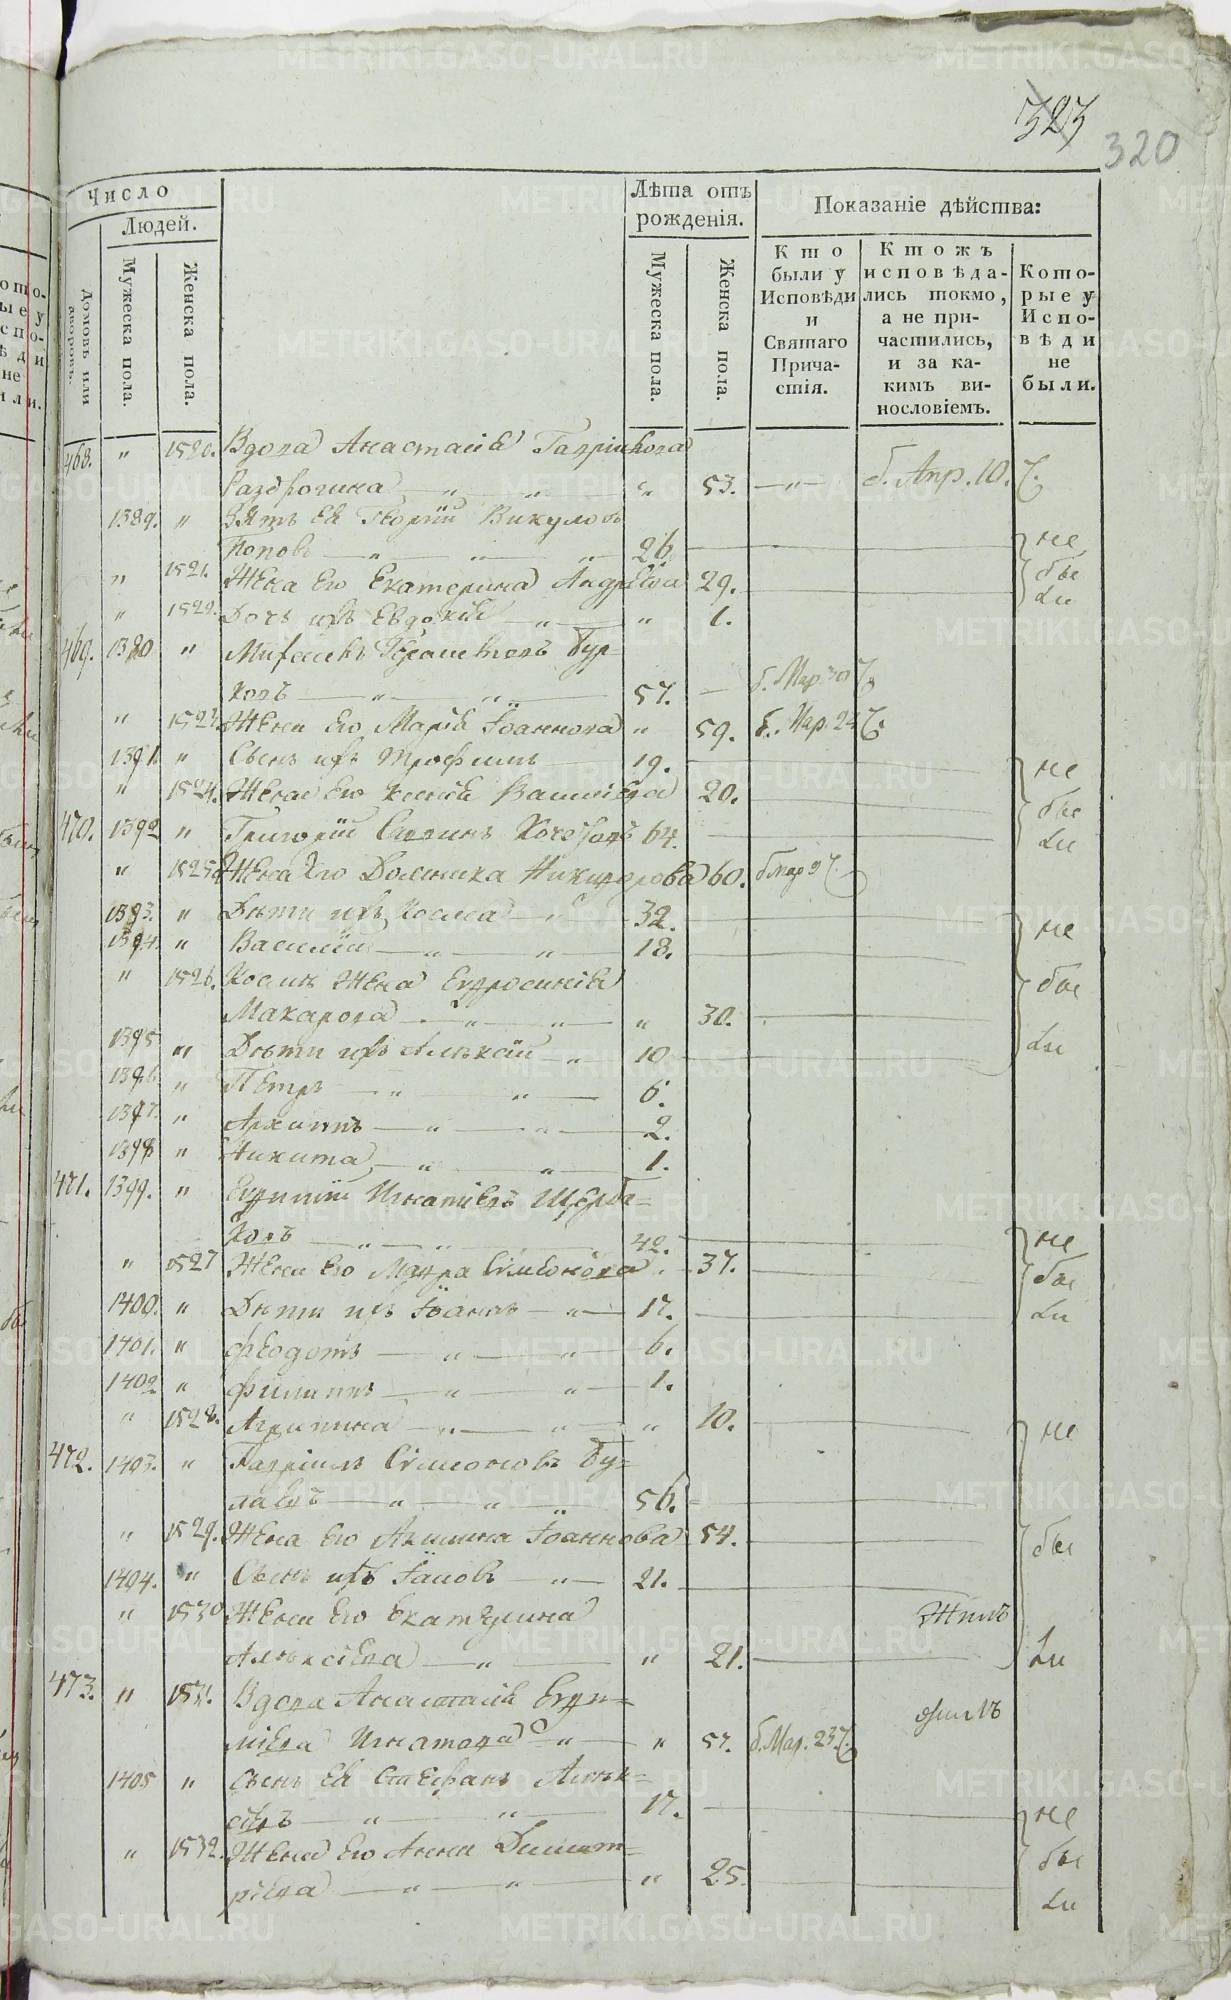 323
320
Число
Людей.
Домовъ или дворовъ.
Мужеска пола.
Женска пола.
Лѣта отъ рожденія.
Мужеска пола.
Женска пола.
Показаніе дѣйства:
Кто были у Исповѣди и Святаго Причастія.
Ктожъ исповѣдались токмо, а не причастились, и за какимъ винословіемъ.
Которые у Исповѣди не были.
468. " 1520. Вдова Анастасія Гавріилова
" " " 53. " б. Апр. 10.
1389. " Зять Ея Георгій Викуловъ
Поповъ " " " 26. не
" 1521. Жена Его Екатерина Андреева 29. бы
" 1522. Дочь ихъ Евдокія " " 1. ли
469. 1390 "
ковъ " " 57. б. Мар. 30
" 1523. Жена Его Марія Іоаннова " 59. б. Мар. 24
1391. " Сынъ ихъ Трофимъ 19. не
" 1524. Жена Его Ксенія Васильева 20. бы
470. 1392 " Григорій 64. ли
" 1525. Жена Его Домника Никифорова 60. б Мар 9
1393. " Дѣти ихъ Косма " 32. не
1394. " Василій " " 18.
" 1526. Космы Жена Евфросинія бы
Макарова " " " 30.
1395 " Дѣти ихъ Алексѣй " 10 ли
1396. " Петръ " " 6.
1397. " Архиппъ " " 2.
1398 " Никита " " 1.
471. 1399. " Евфимій Игнатіевъ Щерба=
ковъ " " 42. не
" 1527 Жена Его Мавра Симеонова 37. бы
1400. " Дѣти ихъ Іоаннъ " 17. ли
1401. " Феодотъ " " 6.
1402 " Филиппъ " " 1.
" 1528. Агрипина " " " 10. не
472. 1403. " Гавріилъ Симеоновъ Бу=
лаевъ " " " 56.
" 1529. Жена Его Акилина Іоаннова 54. бы
1404. " Сынъ ихъ Іаковъ " 21.
" 1530 Жена Его Екатерина
Алексіева " " 21. ли
473. " 1531. Вдова Анастасія Евфи=
міева Игнатова " " 57. б. Мар. 23
1405 " Сынъ Ея Стефанъ Алек=
сѣевъ " " 17. не
" 1532. Жена Его Анна Димит= бы
ріева " " " 25. ли
METRIKI.GASO-URAL.RU